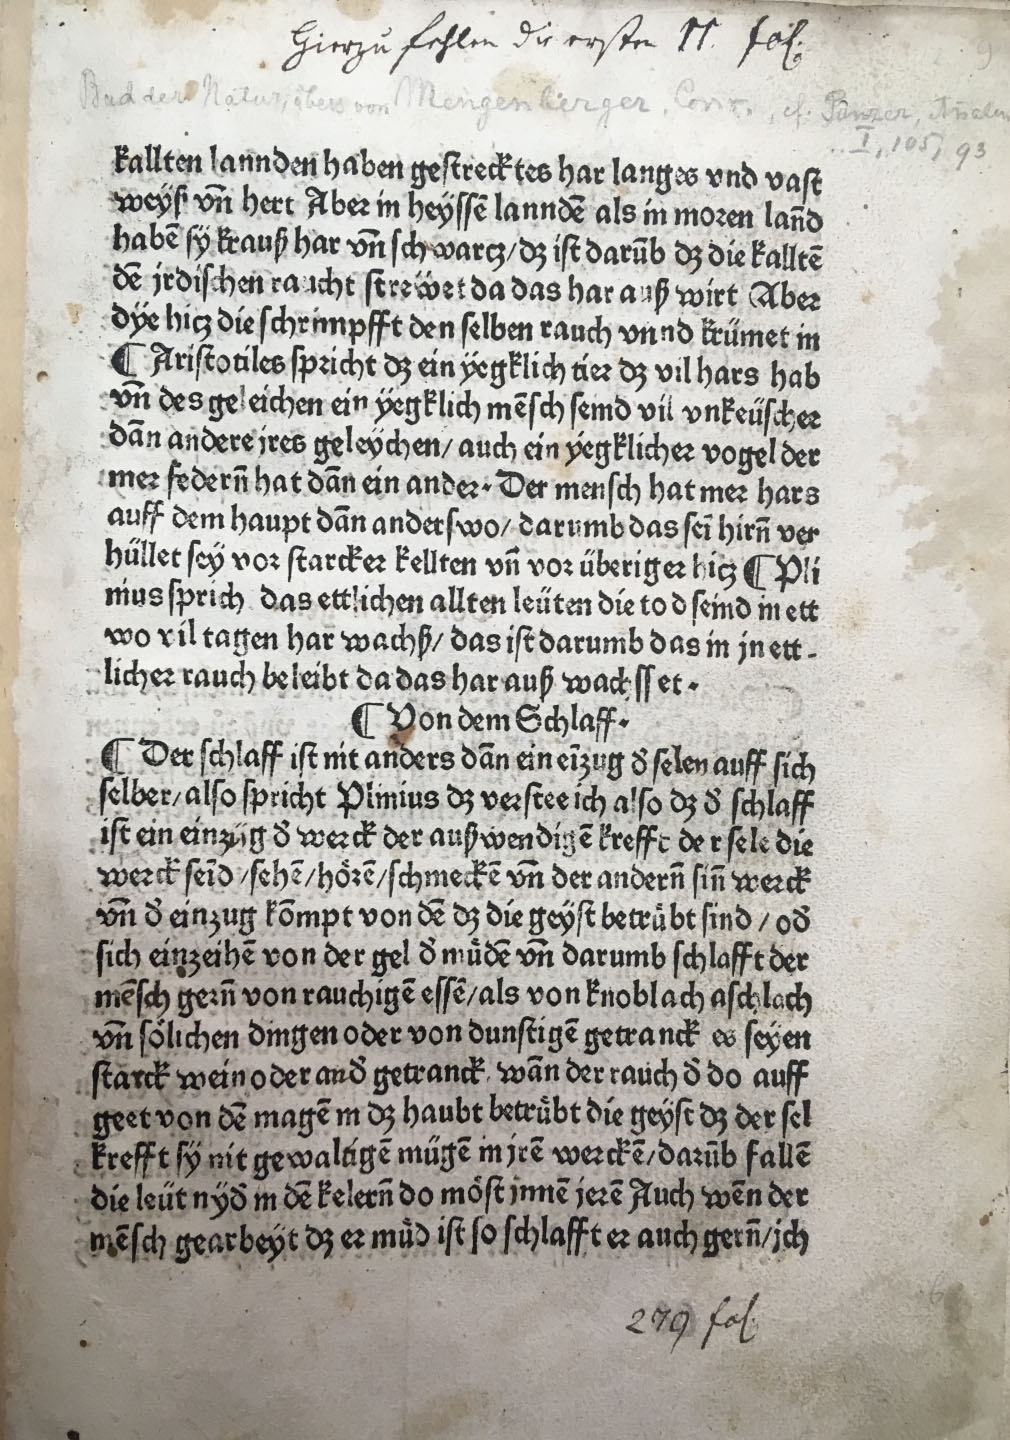 Hierzu fehlen die ersten 11. fol.
Buch der Natur, übers von Mengenberger, Conr., cf. Panzer, Annalen
I, 105, 93
kallten lannden haben gestrecktes har langes vnd vast
weyß vñ hert Aber in heyssē lanndē als in moren lañd
habē sy krauß har vñ schwarcz/ dz ist darūb dz die kalltē
dē jrdischen raucht strewet da das har auß wirt Aber
dye hicz die schrimpfft den selben rauch vnnd krümet in
¶ Aristotiles spricht dz ein yegklich tier dz vil hars hab
vñ des geleichen ein yegklich mēsch seind vil vnkeüscher
dañ andere jres geleychen/ auch ein yegklicher vogel der
mer federñ hat dañ ein ander. Der mensch hat mer hars
auff dem haupt dañ anderswo/ darumb das sei hirñ ver
hüllet sey vor starcker kellten vñ vor überiger hicz ¶ Pli
nius sprich das ettlichen allten leüten die tod seind in ett
wo vil tagen har wachß/ das ist darumb das in jn ett-
licher rauch beleibt da das har auß wachsset.
¶ Von dem Schlaff.
¶ Der schlaff ist nit anders dañ ein eīzug ď selen auff sich
selber/ also spricht Plinius dz verstee ich also dz ď schlaff
ist ein einzüg ď werck der außwendigē krefft der sele die
werck seīd/ sehē/ hörē/ schmeckē vñ der anderñ siñ werck
vñ ď einzug kōmpt von dē dz die geyst betrübt sind/ oď
sich einzeihē von der gel ď müdē vñ darumb schlafft der
mēsch gerñ von rauchigē essē/ als von knoblach aschlach
vñ sölichen dingen oder von dunstigē getranck es seyen
starck wein oder anď getranck. wañ der rauch ď do auff
geet von dē magē in dz haubt betrübt die geyst dz der sel
krefft sy nit gewaltigē mügē in jrē werckē/ darūb fallē
die leüt nyď in dē kelerñ do möst jnnen jerē Auch wēn der
mēsch gearbeyt dz er müd ist so schlafft er auch gerñ/ jch
279 fol.